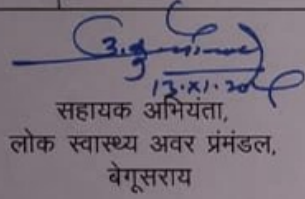 सहायक अभियंता,
लोक स्वास्थ्य अवर प्रंमंडल,
बेगूसराय